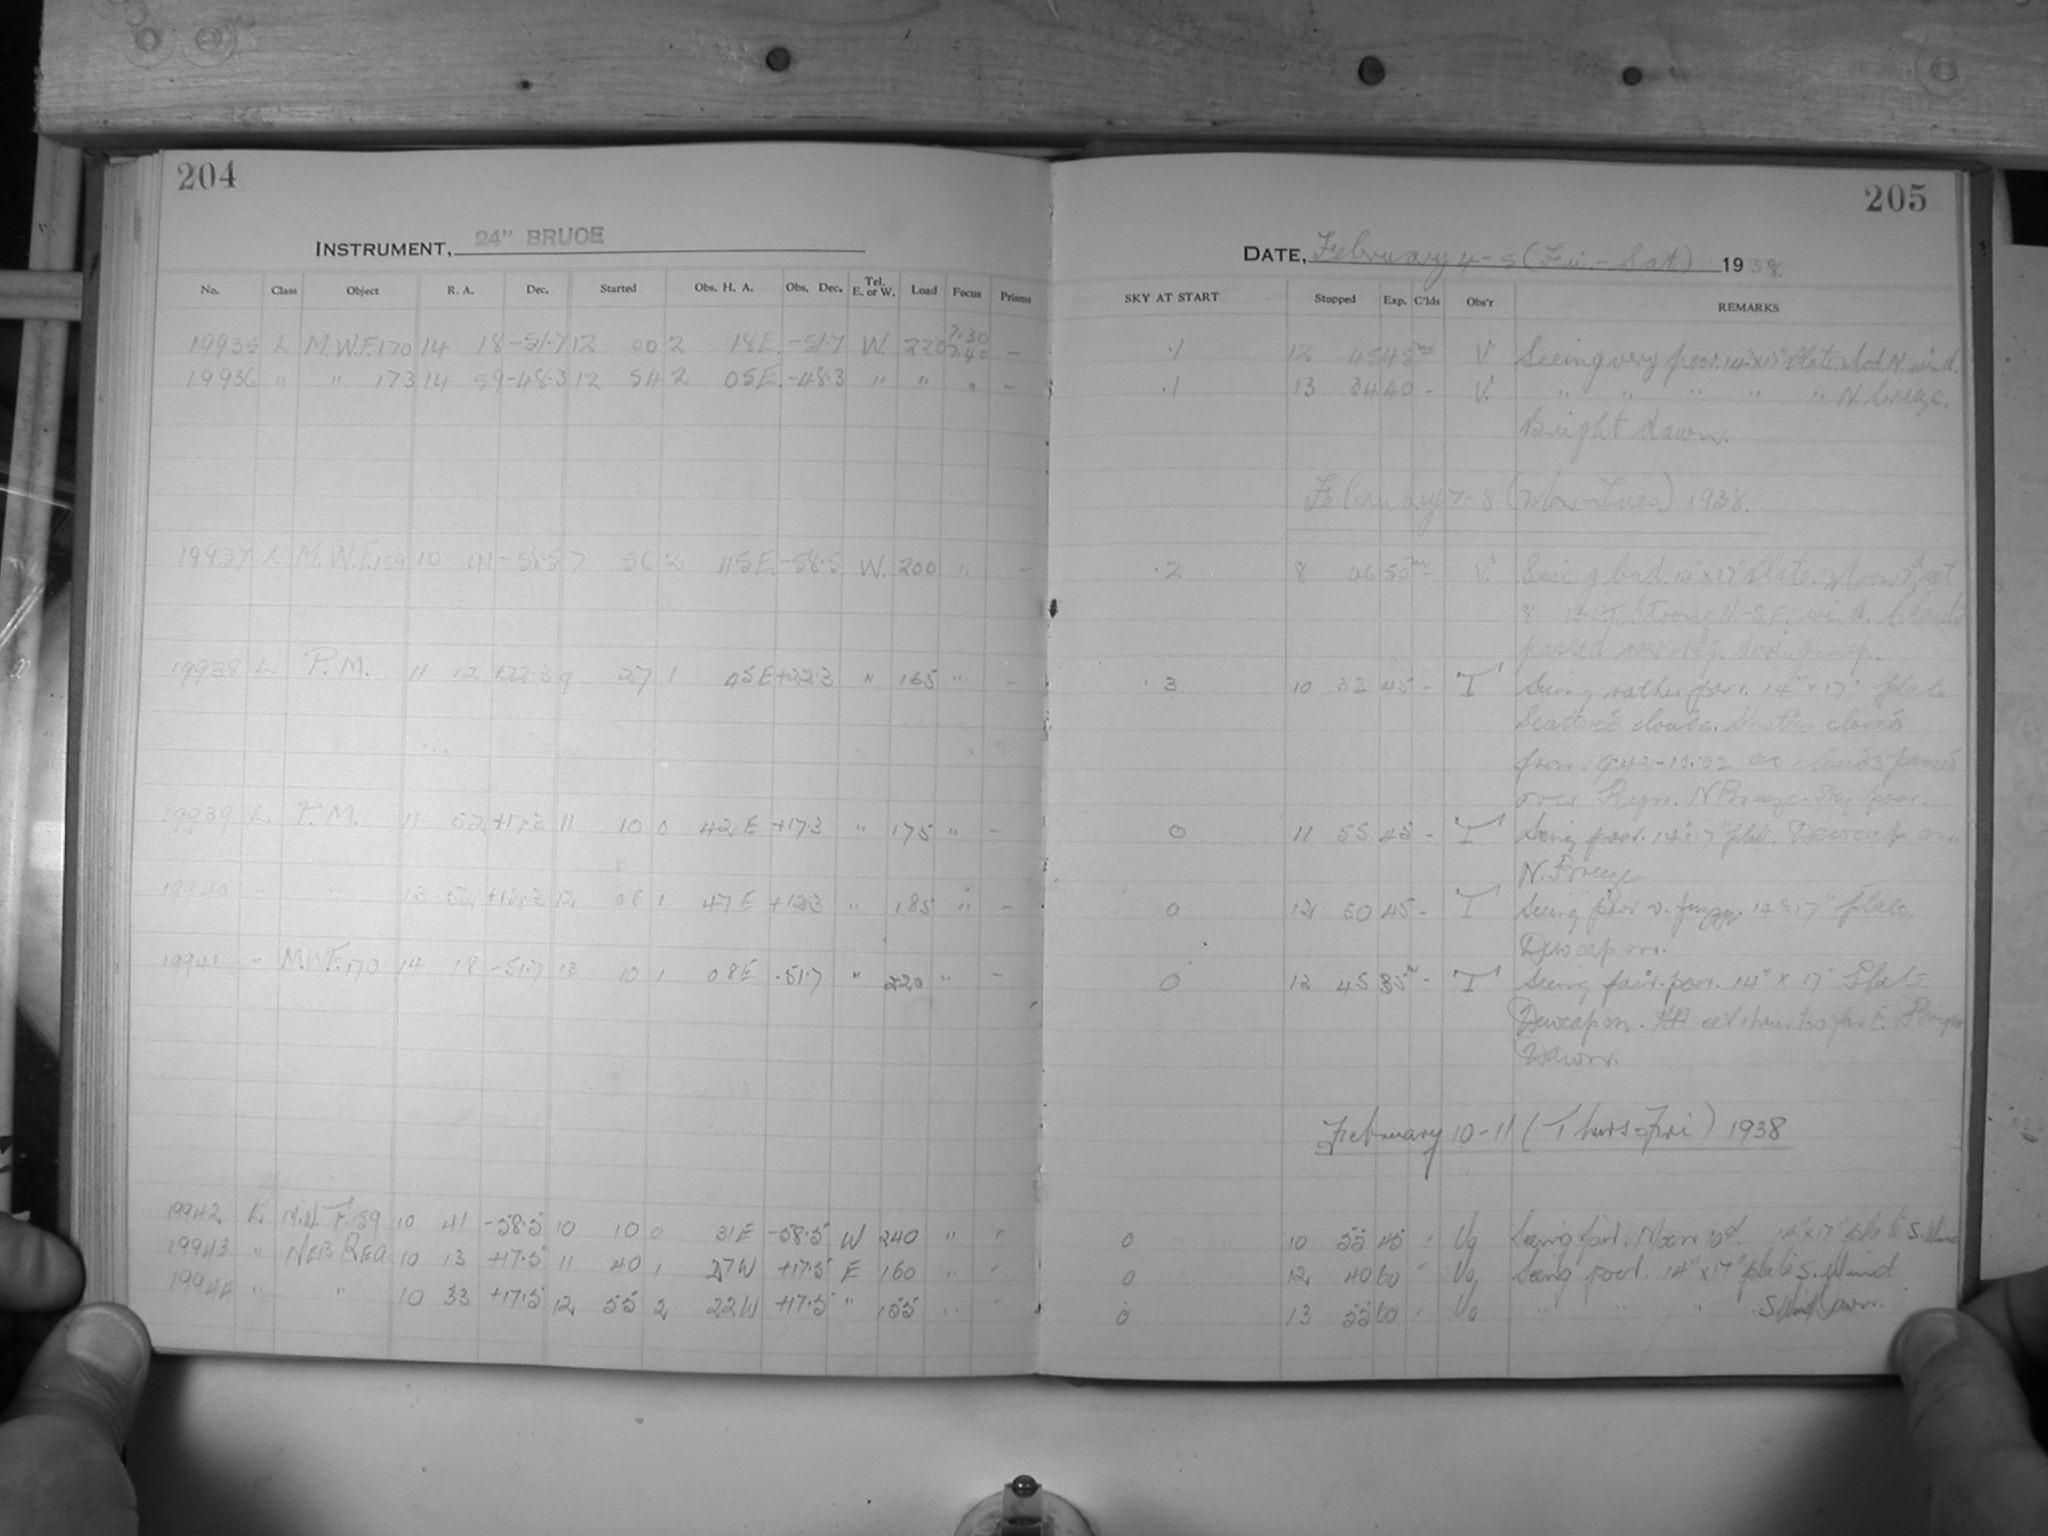 204
205
INSTRUMENT, 24" BRUCE
DATE, February 4-5 (Fri.-Sat) 1938.
No. Class Object R. A. Dec. Started Obs. H. A. Obs. Dec. Tel. E. or W. Load Focus Prisms SKY AT START Stopped Exp. C'lds Obs'r REMARKS
19935 L M.W.F.170 14 18 -51.7 12 00 2 18E. -51.7 W. 220 7.30 7.40 - .1 12 45 45 V. Seeing very poor. 14"x17" Plate. Mod. N. wind.
19936 " " 173 14 59 -48.3 12 54 2 05E. -48.3 " " " - .1 13 34 40 - V. " " " " " N. breeze.
Bright dawn.
February 7-8 (Mon-Tues) 1938.
19937 L M.W.F.159 10 41 -58.5 7 56 2 45E. -58.5 W. 200 " - .2 8 46 50 - V. Seeing bad. 14"x17" Plate. Moon set
8 Strong N.-S.E. wind. Clouds
passed over reg. during exp.
19938 L P.M. 11 12 +22.3 9 27 1 05E +22.3 " 165 " - .3 10 32 45 - T Seeing rather poor. 14"x17" plate
Scattered clouds. Shutter closed
from 9.42- as clouds passed
over Regn. N Breeze. Sky poor.
19939 L P.M. 11 52 +17.3 11 10 0 42 E +17.3 " 175 " - 0 11 55 45 - T Seeing poor. 14"x17" plate. Dewcap on.
N. Breeze
19940 " " 13 52 +12.3 12 05 1 47E +12.3 " 185 " - 0 12 50 45 - T Seeing poor v. fuzzy. 14"x17" Plate.
Dewcap on.
19941 - M.W.F.170 14 18 -51.7 13 10 1 08E -51.7 " 220 " - 0 12 45 35 - T Seeing fair-poor. 14" x 17" Plate
Dewcap on. too fast.
Dawn.
February 10-11 (Thurs-Fri) 1938
19942 L M.W.F.159 10 41 -58.5 10 10 0 31E -58.5 W 240 " " 0 10 55 45 Seeing fair. Moon 10d. 14"x17" plate S. Wind
19943 " 10 13 +17.5 11 40 1 27W +17.5 E 160 " " 0 12 40 60 Seeing poor. 14"x17" plate S. Wind
19944 " " 10 33 +17.5 12 55 2 22W +17.5 " 155 " " 0 13 55 60 " " " S. Wind Dawn.